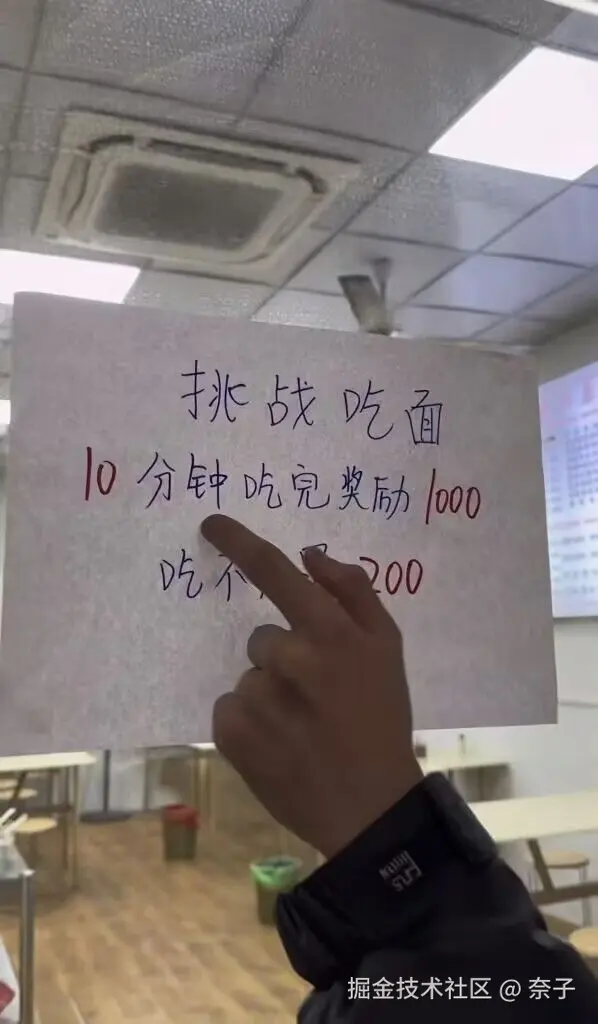 挑战吃面
10分钟吃完奖励1000
吃不 200
掘金技术社区 @ 奈子